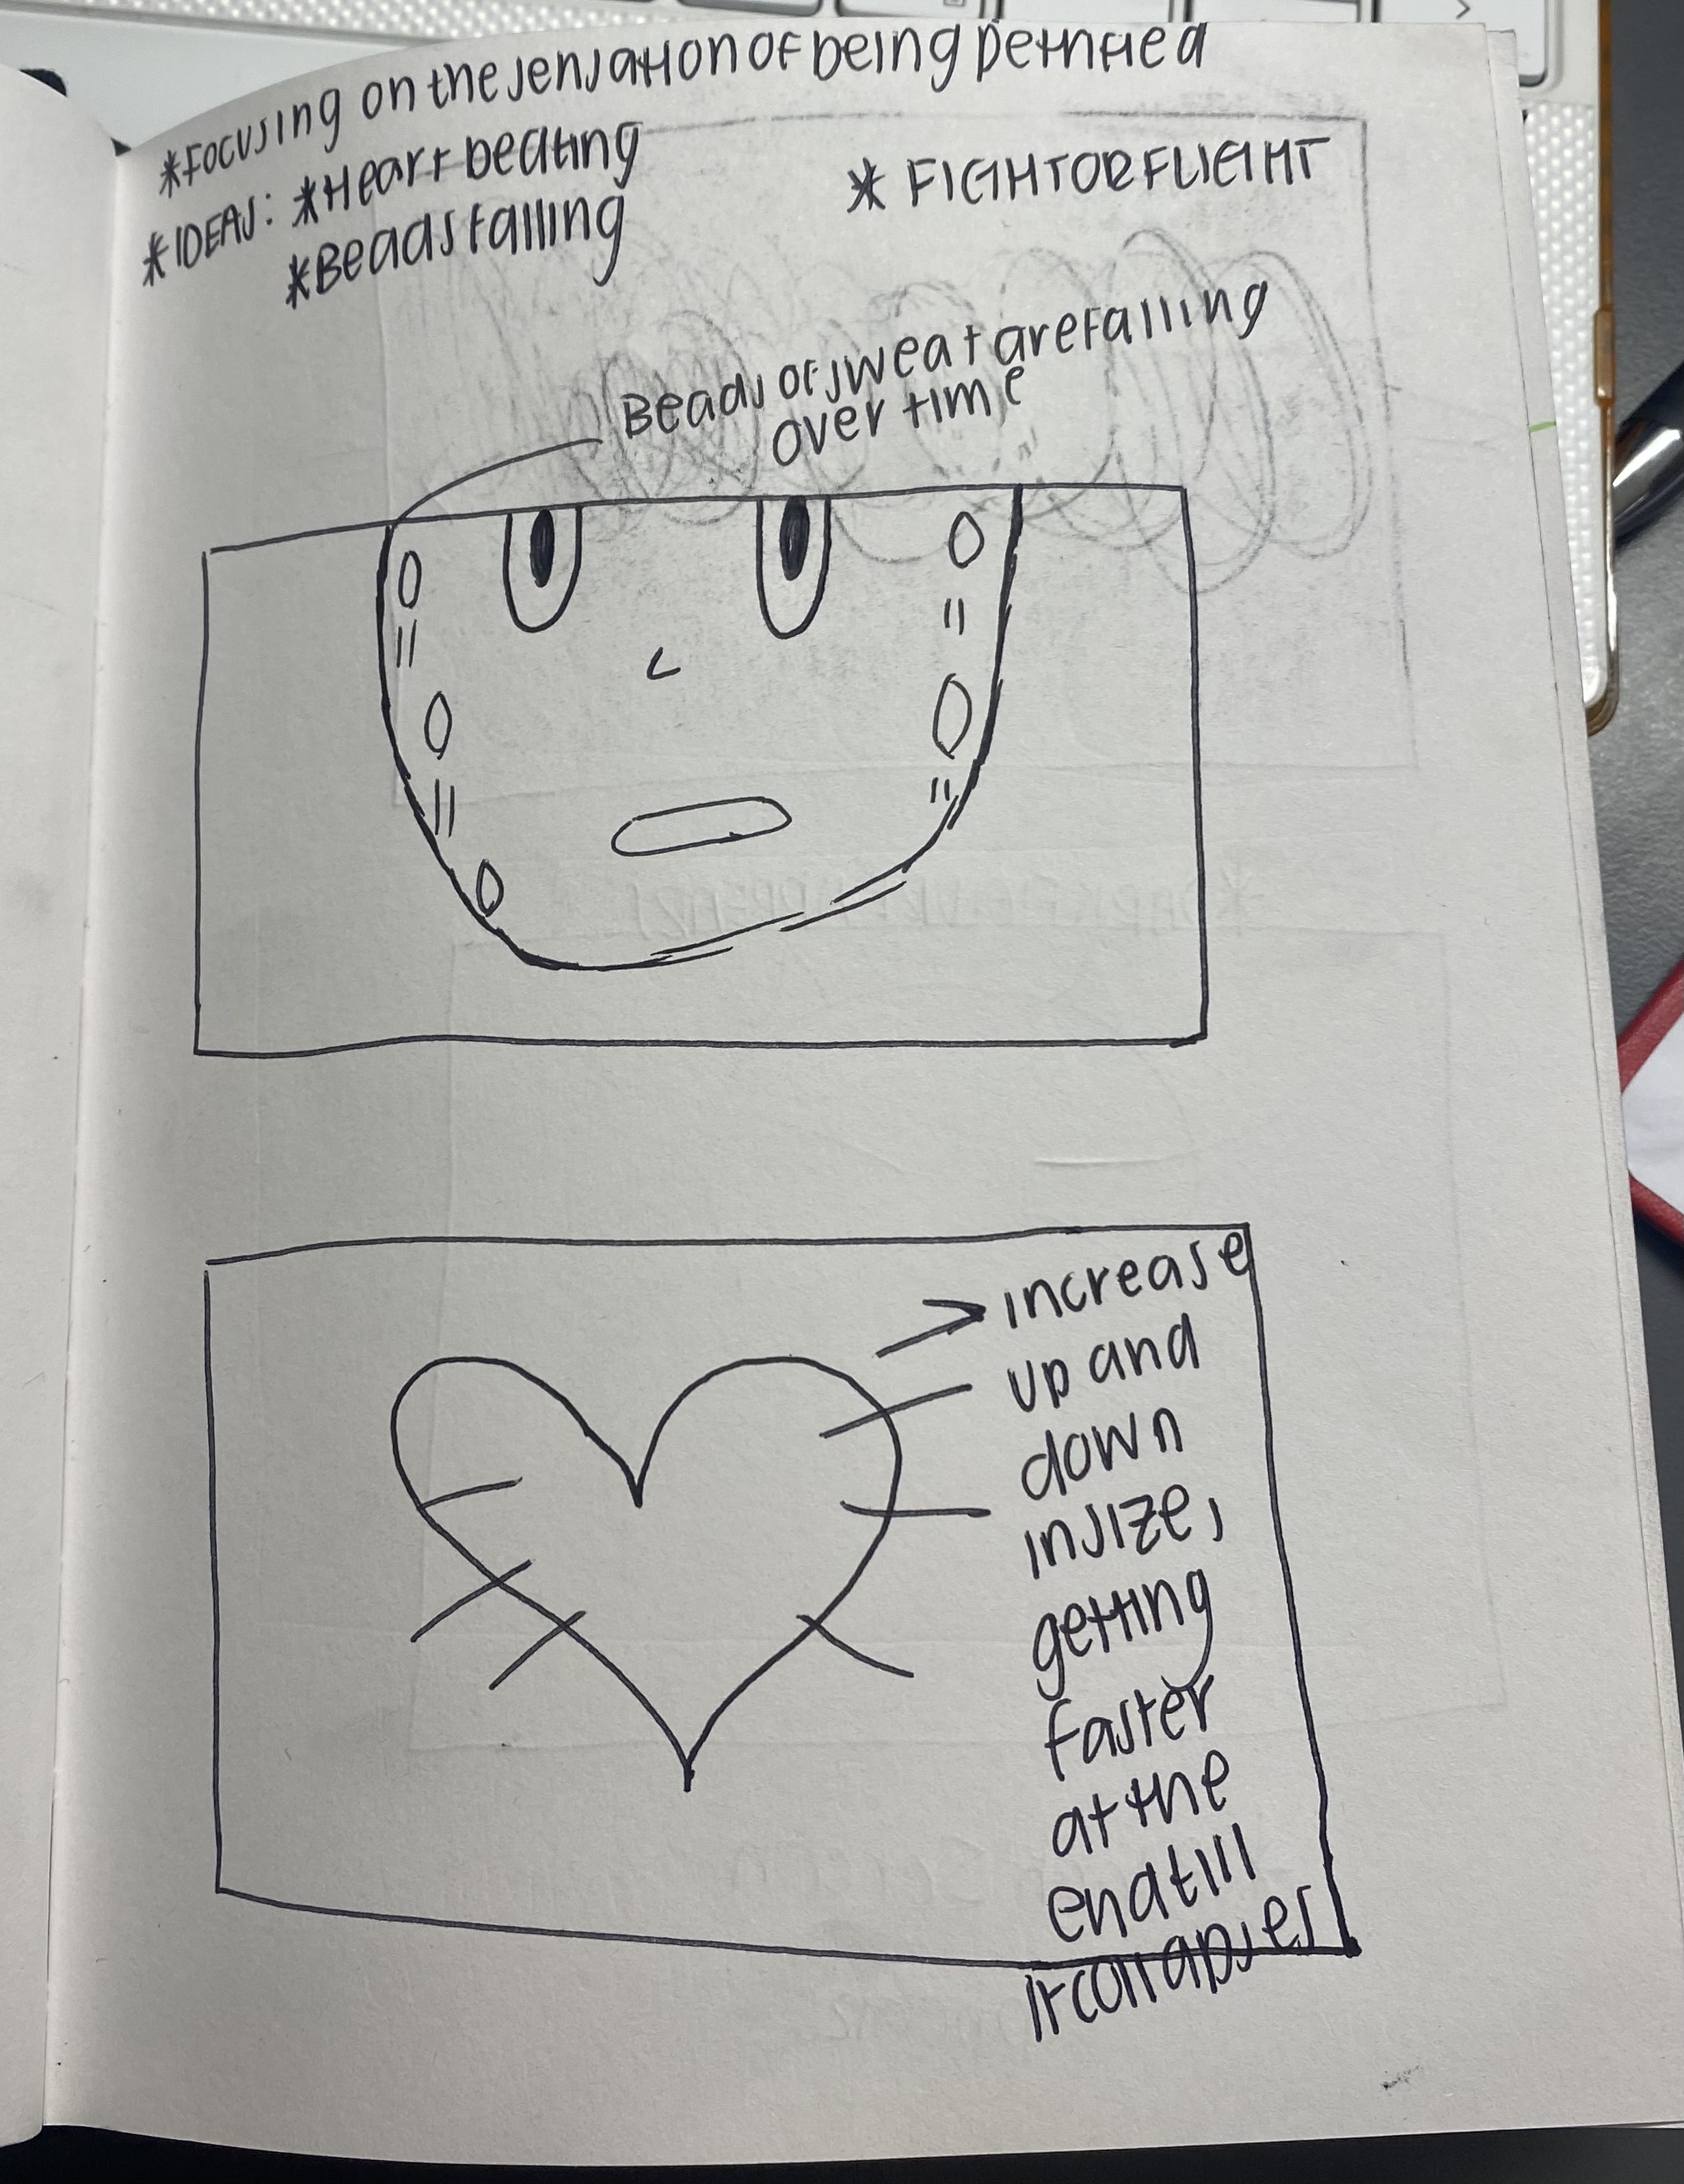 *Focusing on the sensation of being petrified
*IDEAS: *Heart beating
*Beads falling
* FIGHT OR FLIGHT
Beads of sweat are falling
over time
increase
up and
down
in size,
getting
faster
at the
end till
it collapses